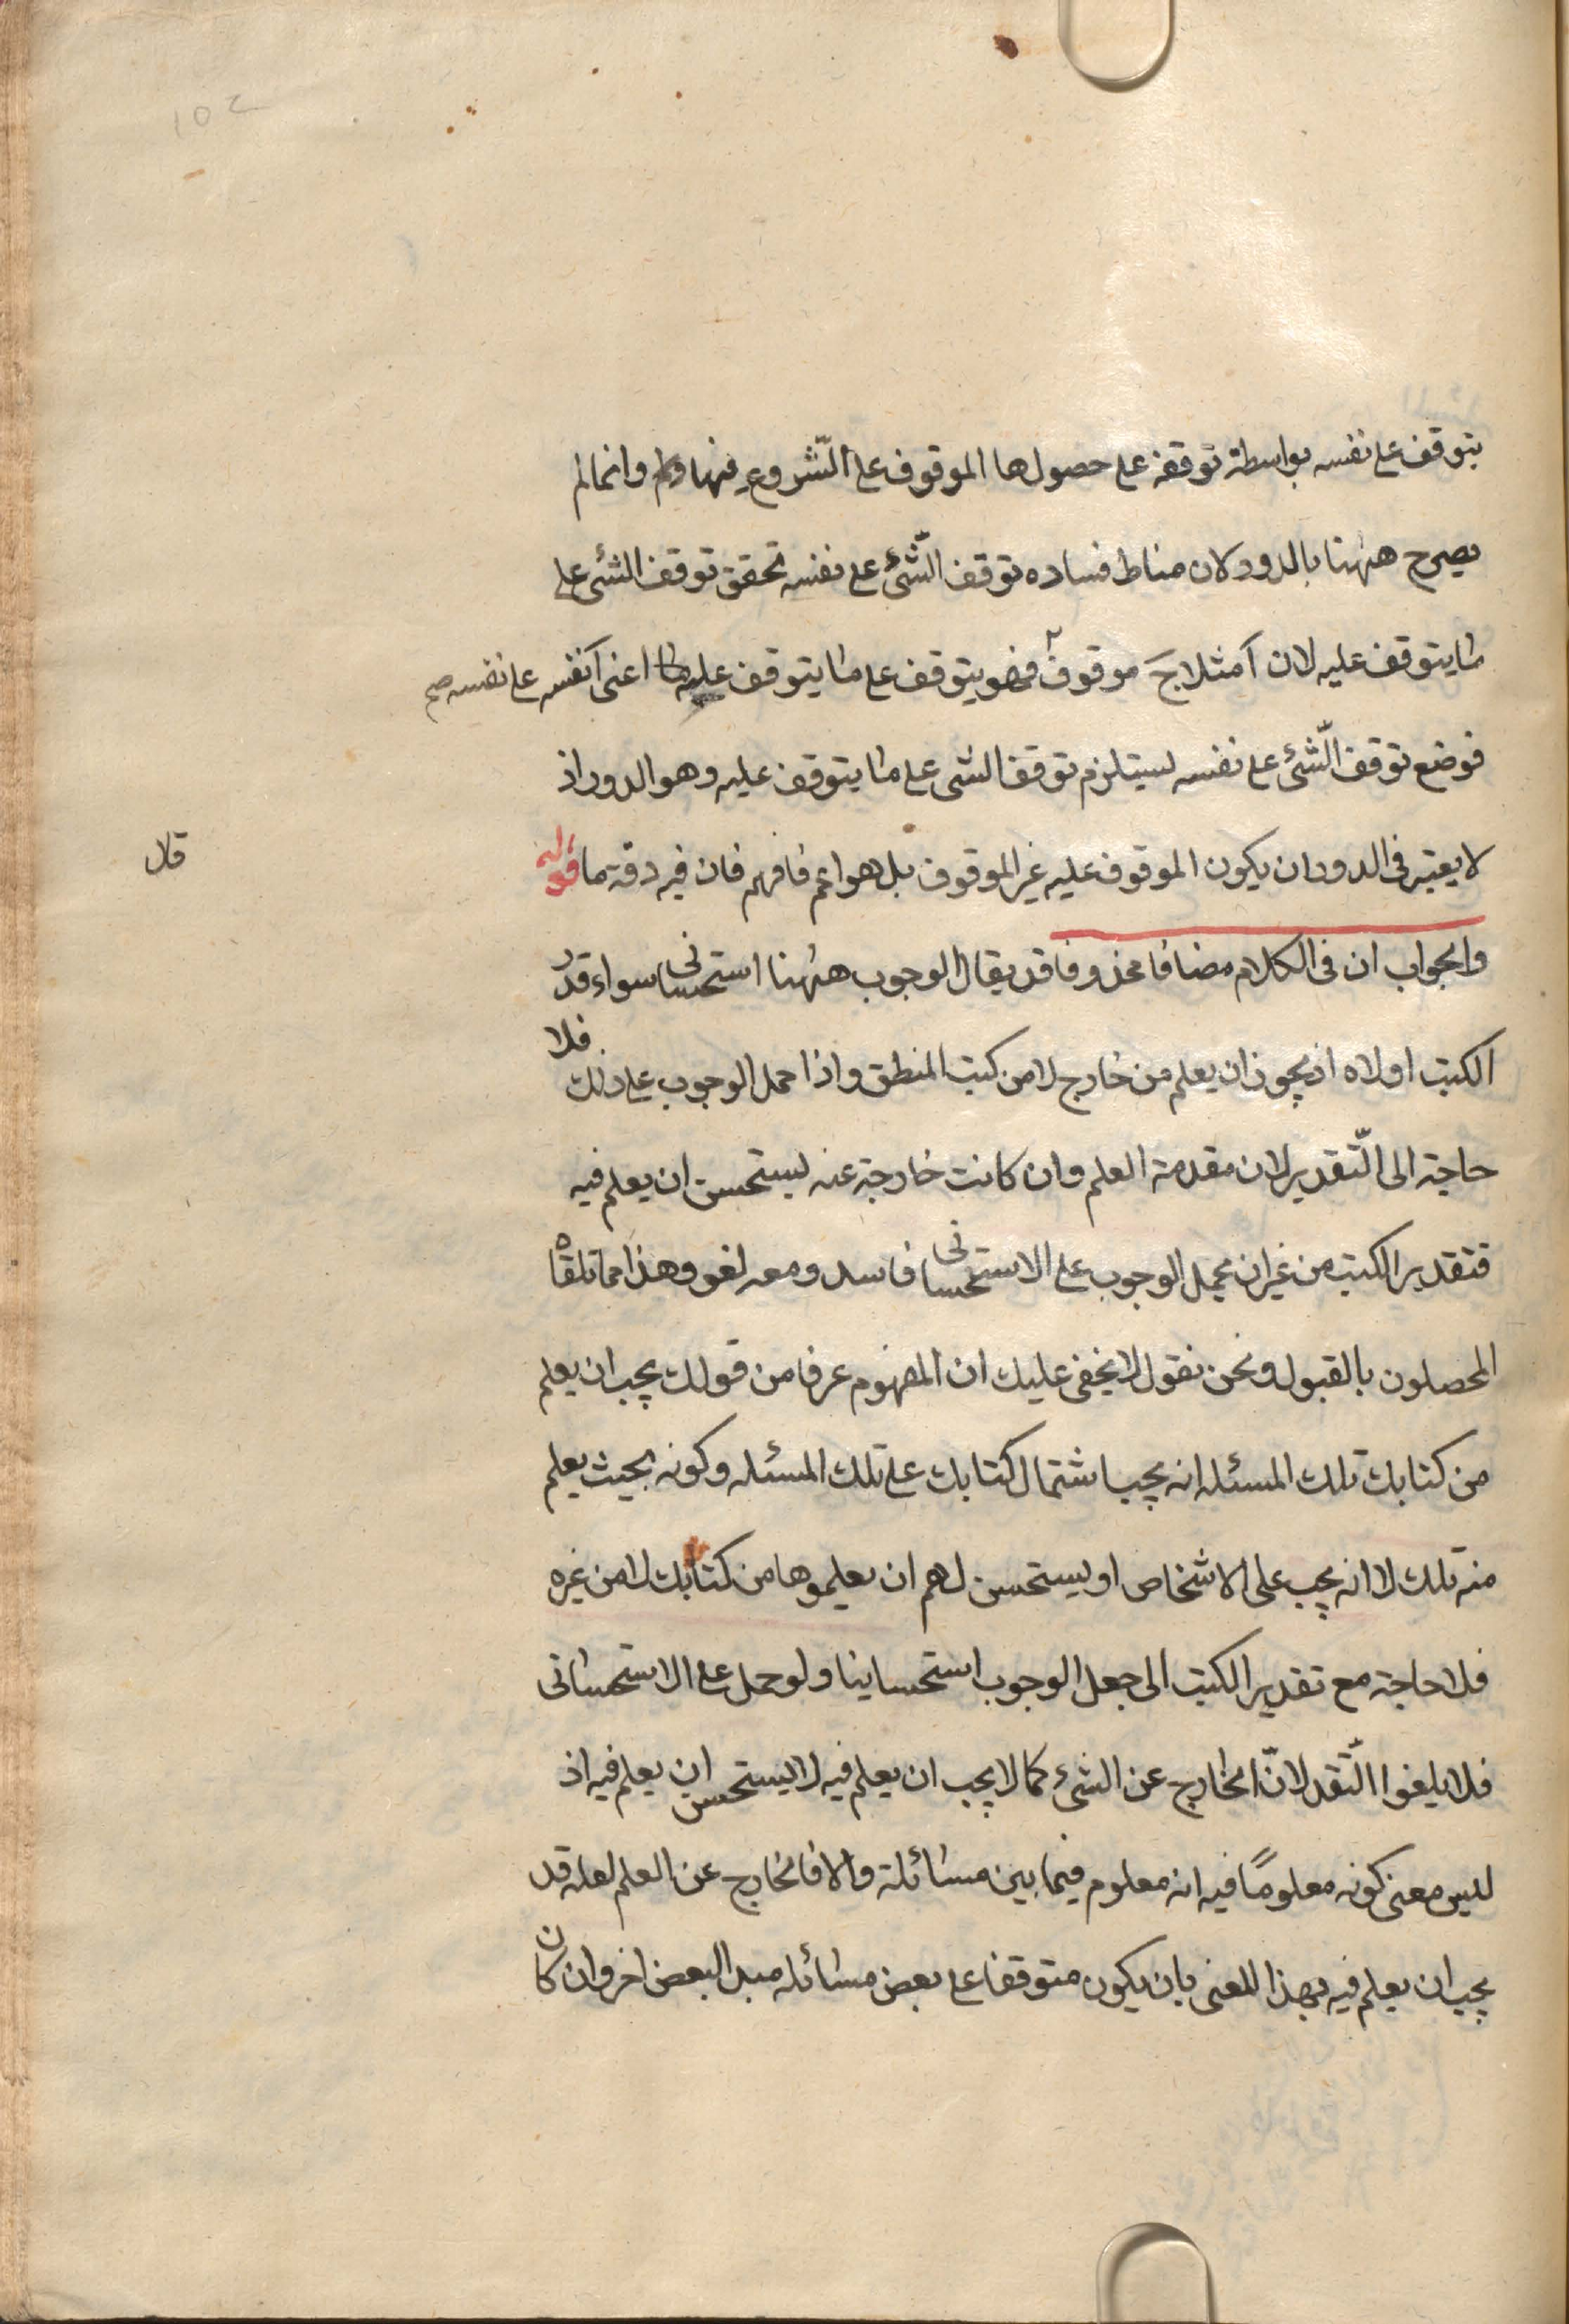 يتوقف على نفسه بواسطة توقفه على حصولها الموقوف على الشّروع فيها وانما لم
يصرح ههنا بالدور لان مناط فساده توقف الشّئ على نفسه تحقق توقف الشئ على
ما يتوقف عليه لان آ مثلا ح موقوف فهو يتوقف على ما يتوقف عليه اعنى آ نفسه على نفسه صح
فوضع توقف الشّئ على نفسه يستلزم توقف الشى على ما يتوقف عليه وهو الدور اذ
لا يعتبر فى الدور ان يكون الموقوف عليه غير الموقوف بل هو اعم فافهم فان فيه دقة ما قوله
قال
والجواب ان فى الكلام مضافا محذوفا قد يقال الوجوب ههنا استحسانى سواء قدر
الكتب اولاه اذ يجوز ان يعلم من خارج لا من كتب المنطق واذا حمل الوجوب على ذلك فلا
حاجة الى التّقدير لان مقدمة العلم وان كانت خارجة عنه يستحسن ان يعلم فيه
فتقدير الكتب من غير ان يحمل الوجوب على الاستحسانى فاسد ومعه لغو وهذا مما تلقاه
المحصلون بالقبول ونحن نقول لا يخفى عليك ان المفهوم عرفا من قولك يجب ان يعلم
من كتابك تلك المسئله انه يجب اشتمال كتابك على تلك المسئله وكونه بحيث يعلم
منه تلك لا انه يجب على الاشخاص او يستحسن لهم ان يعلموها من كتابك لا من غيره
فلا حاجة مع تقدير الكتب الى جعل الوجوب استحسانيا ولو حمل على الاستحسانى
فلا يلغوا التّقدير لانّ الخارج عن الشئ كما لا يجب ان يعلم فيه لا يستحسن ان يعلم فيه اذ
ليس معنى كونه معلومًا فيه انه معلوم فيما بين مسائله والا فالخارج عن العلم لعله قد
يجب ان يعلم فيه بهذا المعنى بان يكون متوقفا على بعض مسائله مبدا لبعض اخر وان كان